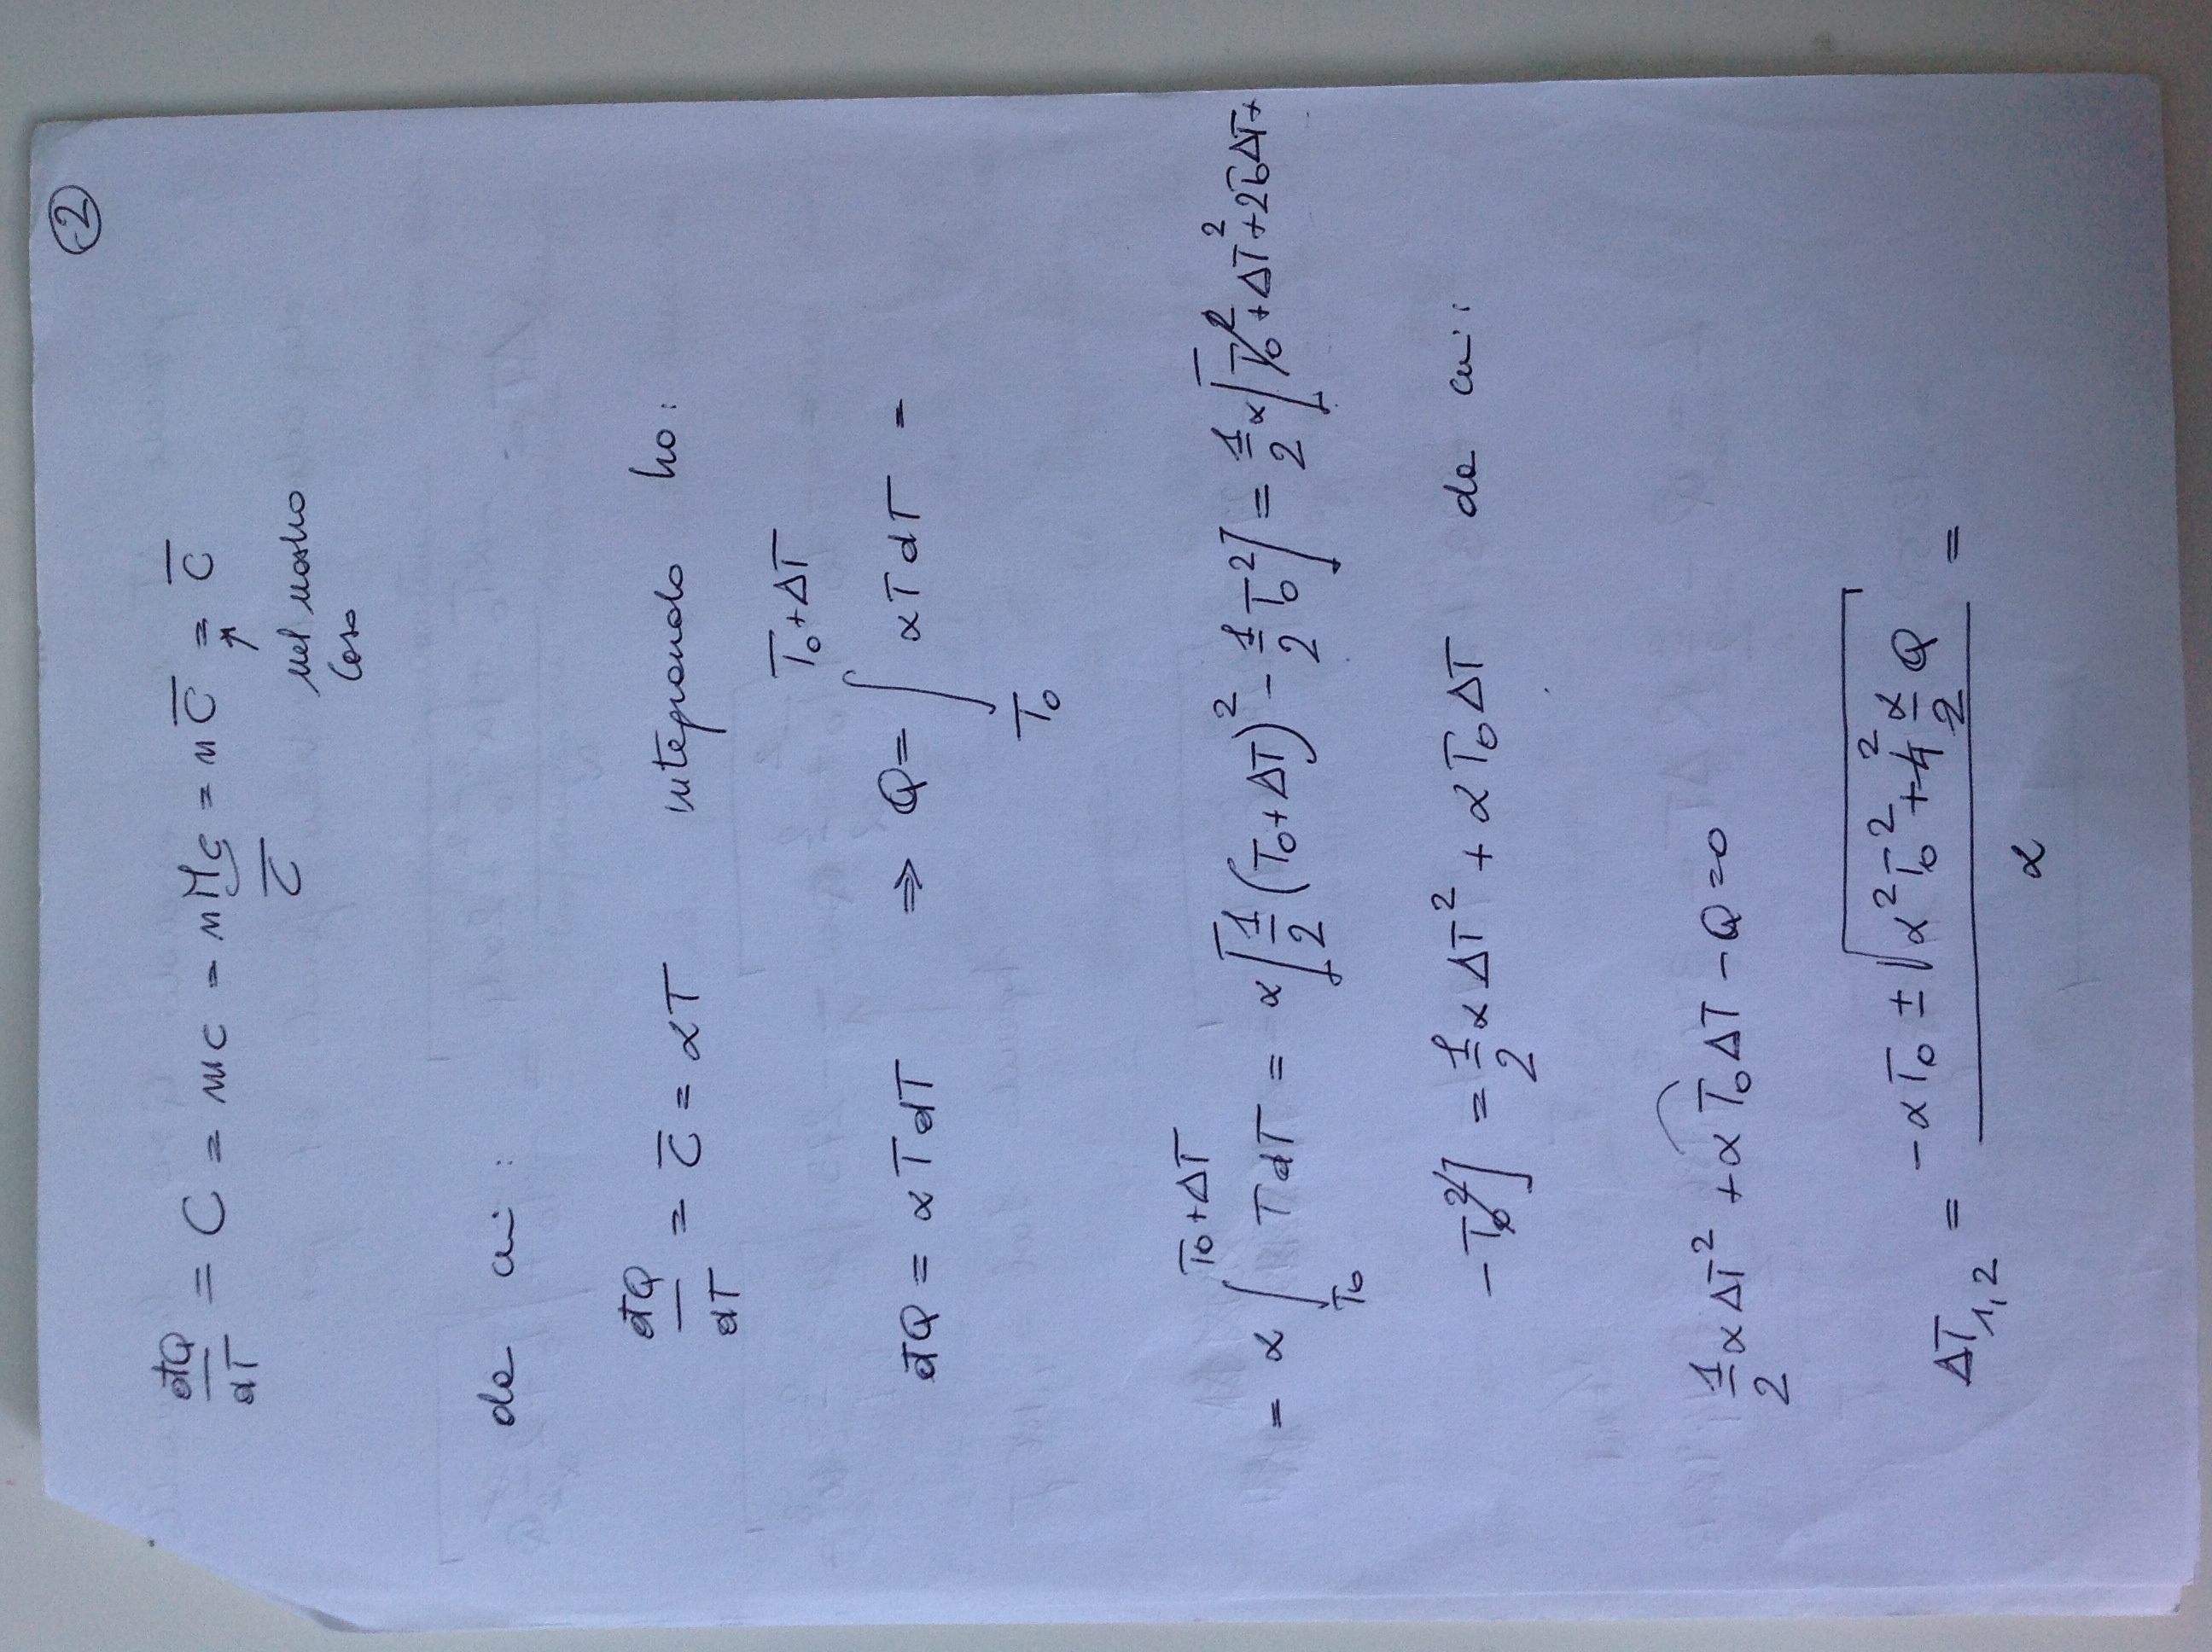 2
đQ/dT = C = mc = nMc = nC̅ = C̅
C̅
nel nostro
caso
da cui:
đQ/dT = C̅ = αT integrando ho:
đQ = αTdT ⇒ Q = ∫_{T₀}^{T₀+ΔT} αTdT =
= α ∫_{T₀}^{T₀+ΔT} TdT = α[1/2 (T₀+ΔT)² - 1/2 T₀²] = 1/2 α[T₀² + ΔT² + 2T₀ΔT +
- T₀²] = 1/2 αΔT² + αT₀ΔT da cui:
1/2 αΔT² + αT₀ΔT - Q = 0
ΔT₁,₂ = (-αT₀ ± √(α²T₀² + 4 2 α/2 Q))/α =